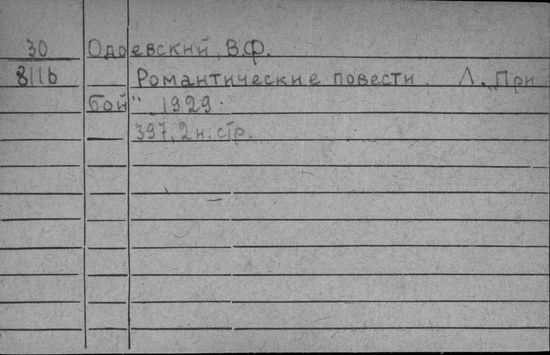 30 Одоевский, В.Ф.
8116 Романтические повести. Л., „При
бой" 1929.
397, 2 н. стр.